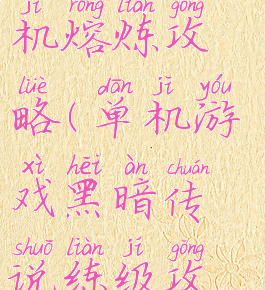 jī róng liàn gōng
机熔炼攻
lüè dān jī yóu
略(单机游
xì hēi àn chuán
戏黑暗传
shuō liàn jí gōng
说练级攻